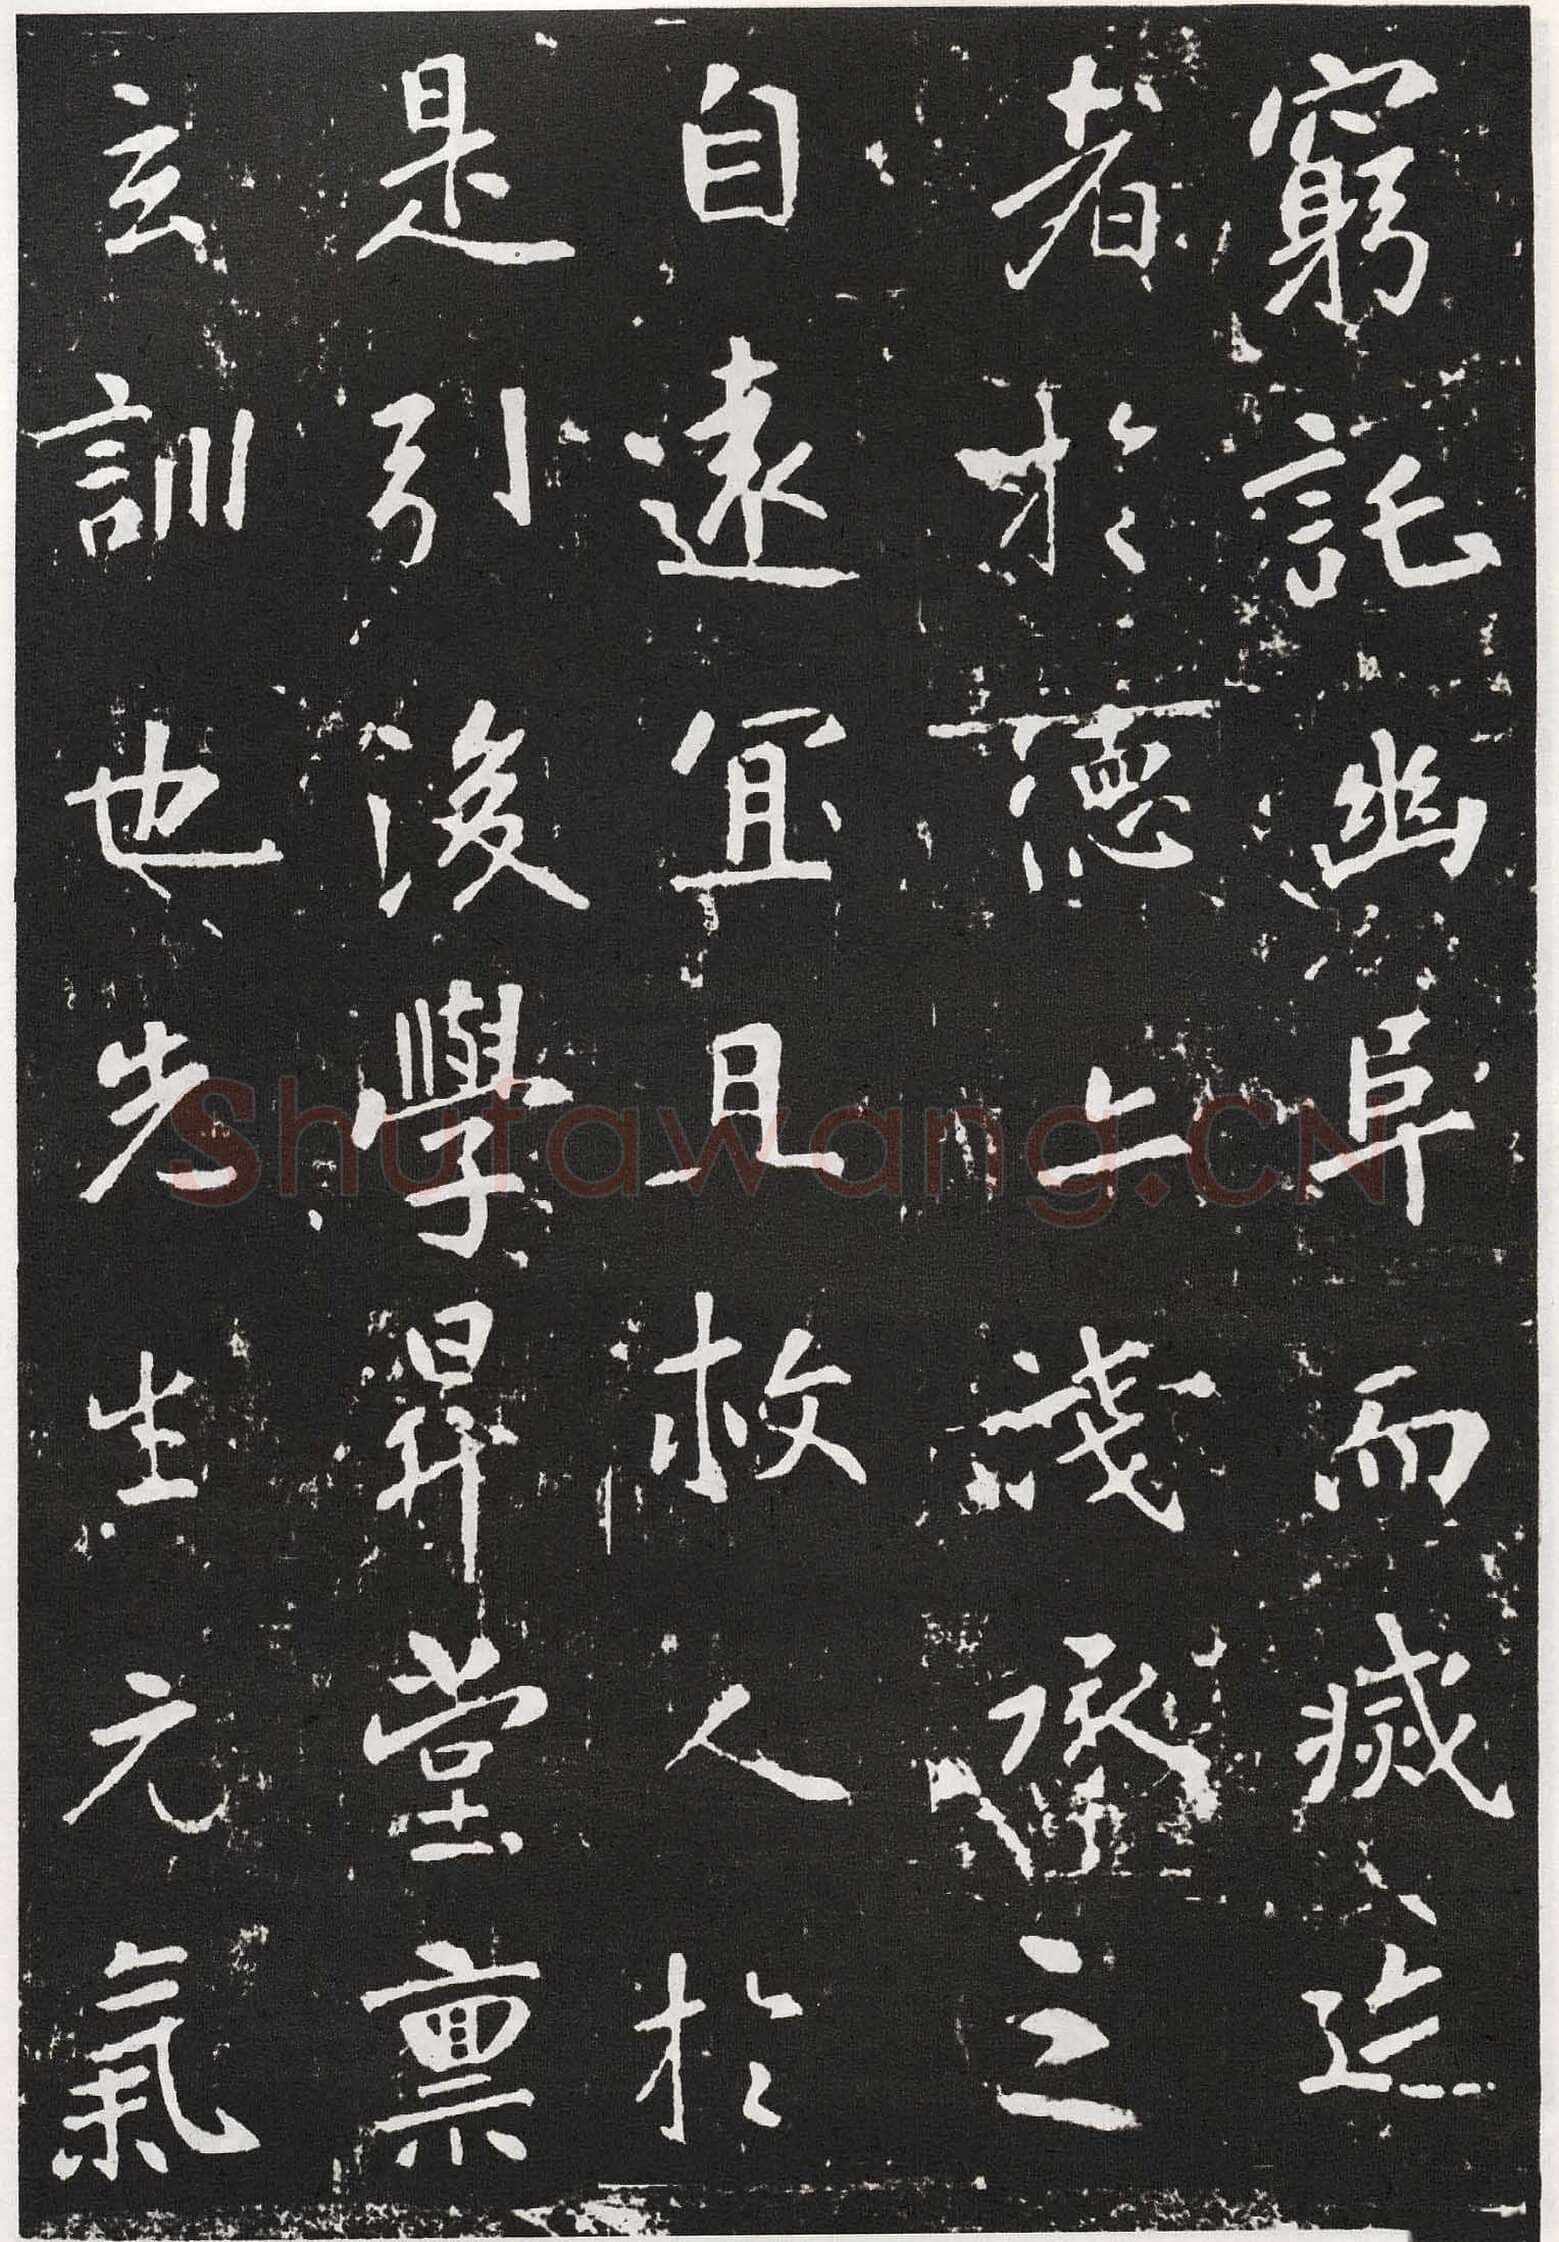 窮託幽阜而滅迹
者於德上淺承之
自遠宜且救人於
是引後學昇堂稟
玄訓也先生元氣
Shufawang.CN